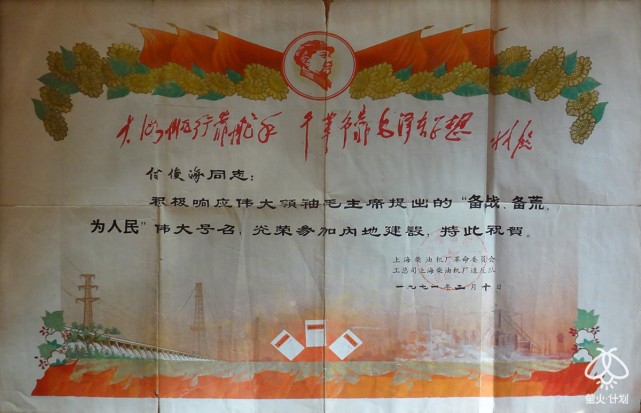 大海航行靠舵手 干革命靠毛泽东思想 林彪
俊海同志：
积极响应伟大领袖毛主席提出的“备战、备荒、
为人民”伟大号召，光荣参加内地建设，特此祝贺。
上海柴油机厂革命委员会
工总司上海柴油机厂造反队
一九七一年 月十日
星火·计划